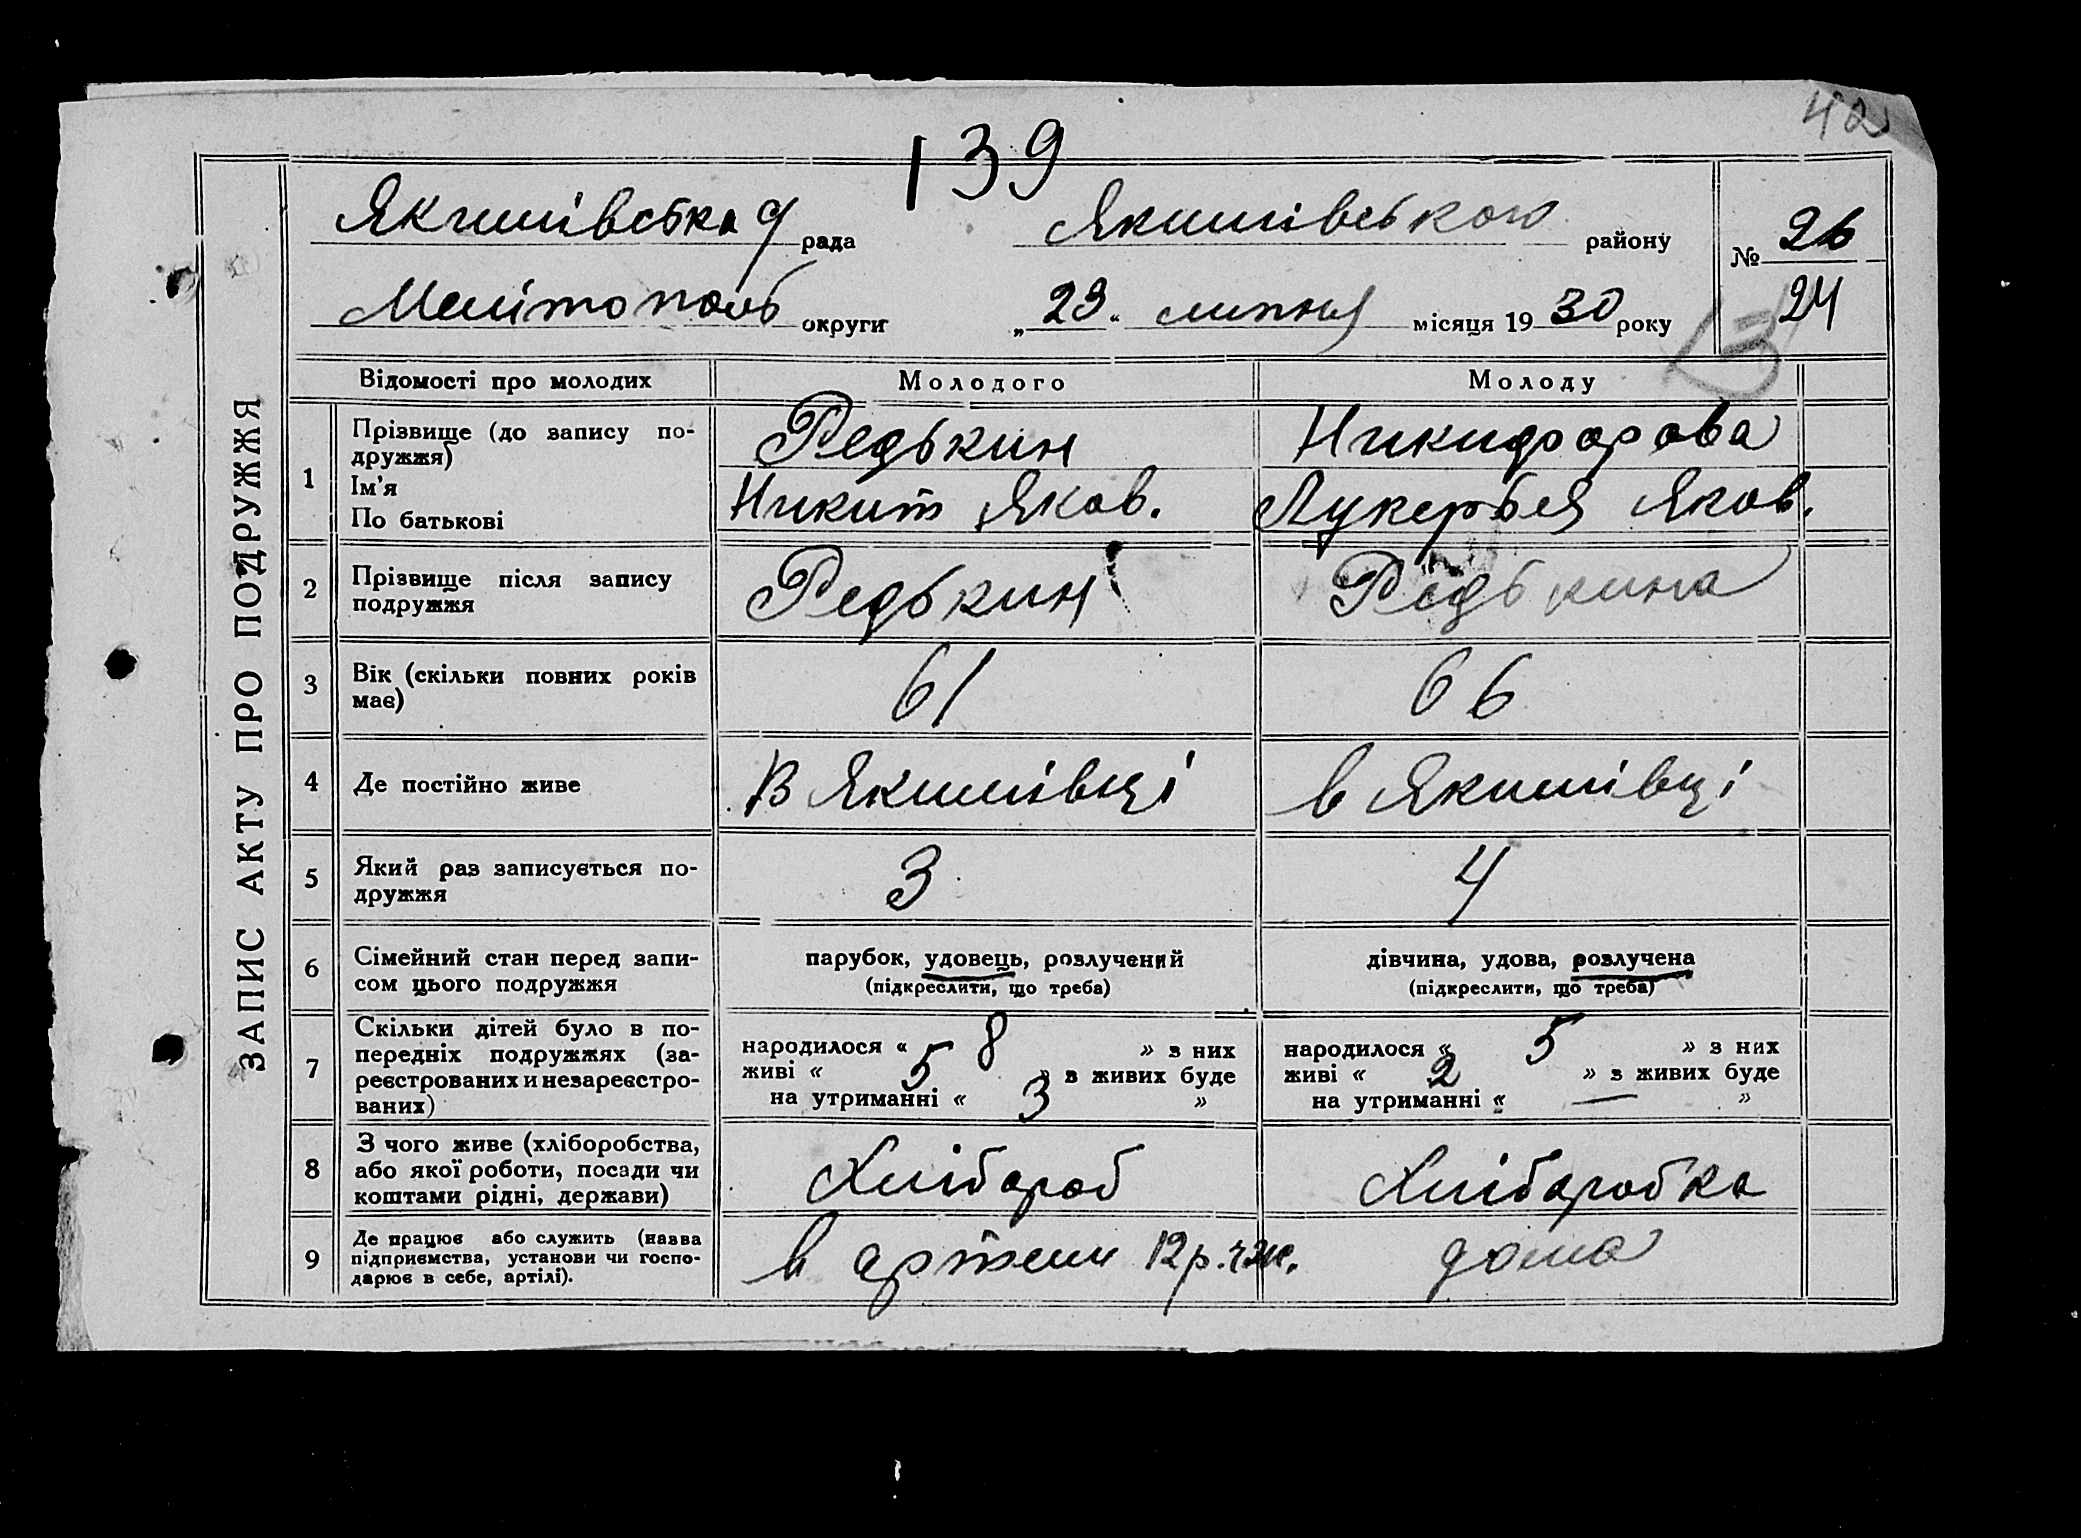 42
139
Якимівська рада Якимівського району № 26
24
Мелітополь округи „ 23 “ липня місяця 19 30 року
ЗАПИС АКТУ ПРО ПОДРУЖЖЯ
Відомості про молодих Молодого Молоду
1 Прізвище (до запису по-
дружжя) Редькин Никифорова
Ім'я
По батькові Никит Яков. Лукерья Яков.
2 Прізвище після запису
подружжя Редькин Редькина
3 Вік (скільки повних років
має) 61 66
4 Де постійно живе В Якимівці в Якимівці
5 Який раз записується по-
дружжя 3 4
6 Сімейний стан перед запи-
сом цього подружжя
парубок, удовець, розлучений
(підкреслити, що треба)
дівчина, удова, розлучена
(підкреслити, що треба)
7 Скільки дітей було в по-
передніх подружжях (за-
реєстрованих и незареєстро-
ваних)
народилося « 8 » з них
живі « 5 » з живих буде
на утриманні « 3 »
народилося « 5 » з них
живі « 2 » з живих буде
на утриманні « — »
8 З чого живе (хліборобства,
або якої роботи, посади чи
коштами рідні, держави) Хлібороб Хлібаробка
9 Де працює або служить (назва
підприємства, установи чи госпо-
дарює в себе, артілі). в артели 12 р. дома